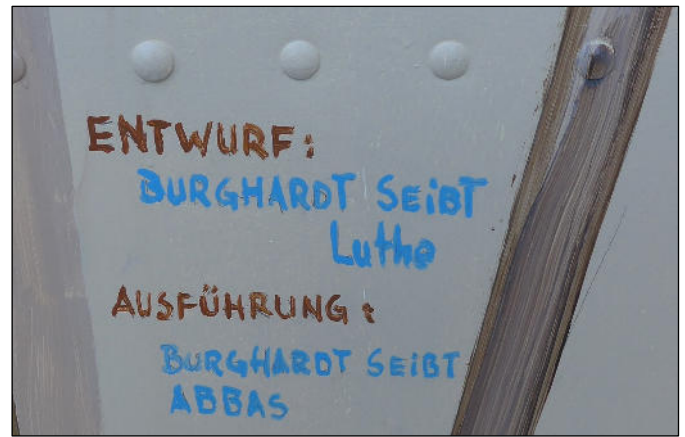 ENTWURF:
BURGHARDT SEiBT
Luthe
AUSFÜHRUNG:
BURGHARDT SEiBT
ABBAS